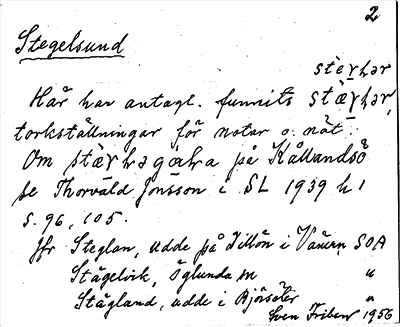 2
Stegelsund
stèɣhər
Här har antagl. funnits stæ̀ɣhər,
torkställningar för notar o. nät.
Om stæ̀ɣhəgaha på Kållandsö
se Thorvald Jonsson i SL 1939 h 1
s. 96, 105.
Jfr Steglan, udde på Tillön i Vänern SOA
Stägelvik, Öglunda sn "
Stägland, udde i Björsäter "
Sven Friberg 1956